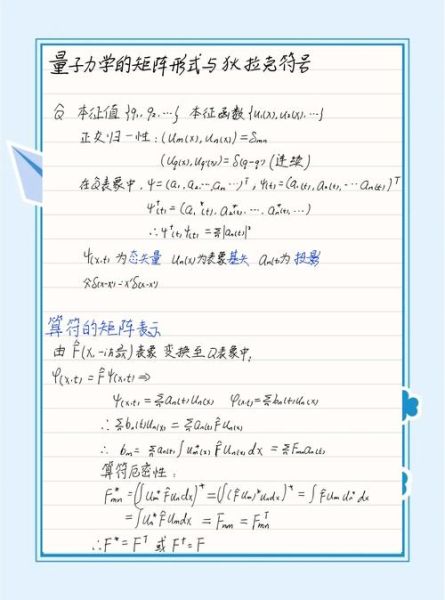 量子力学的矩阵形式与狄拉克符号
Q̂ 本征值 {q₁, q₂, …} 本征函数 {u₁(x), u₂(x), …}
正交归一性：(um(x), un(x)) = δmn
(uq(x), uq'(x)) = δ(q-q') (连续)
在Q表象中，ψ = (a₁, a₂ … am …)ᵀ, ψ(t) = (a₁(t), a₂(t), … an(t))ᵀ
ψ†(t) = (a₁*(t), a₂*(t), …, an*(t), …)
∴ ψ†(t) ψ(t) = Σ|an(t)|²
ψ(x,t) 为态矢量 un(x)为表象基矢 an(t)为投影
xδ(x-x') = x'δ(x-x')
算符的矩阵表示
由 F̂(x, -iħ∂/∂x) 表象 变换至Q表象中，
φ(x,t) = F̂ψ(x,t) ⇒
ψ(x,t) = Σan(t)un(x) φ(x,t) = Σbn(t)un(x)
∴ Σbn(t)un(x) = Σan(t) F̂un(x)
∴ bm = Σan(t) ∫um*(x) F̂un(x) dx = ΣFmn an(t)
算符厄密性：
Fmn* = (∫um* F̂un dx)* = (∫(F̂um)* un dx)* = ∫F̂um un* dx
= ∫un* F̂um dx = Fnm = Fmnᵀ
∴ F* = Fᵀ 或 F† = F